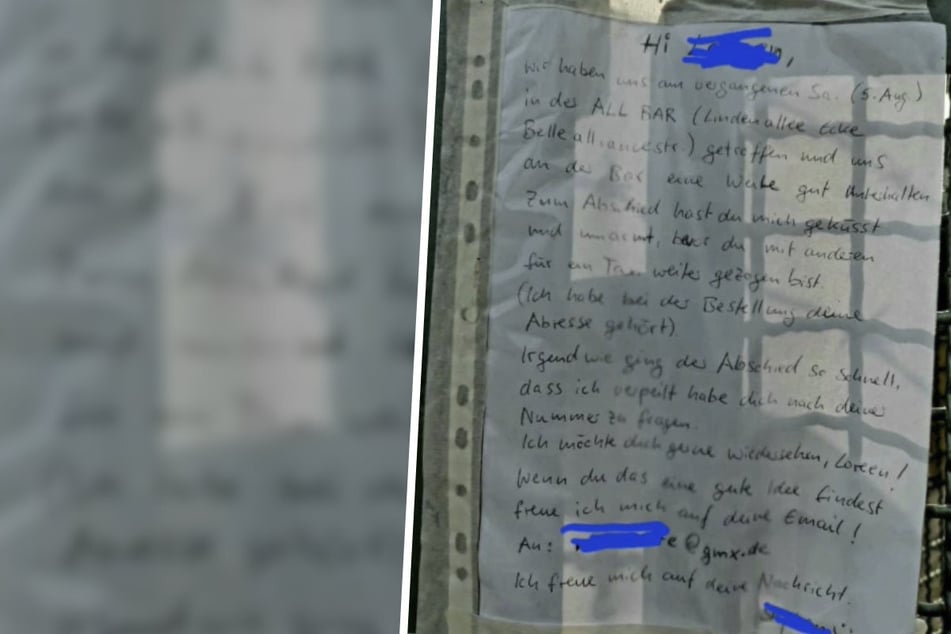 Hi
wir haben uns am vergangenen Sa. (5. Aug)
in der ALL BAR (Lindenallee Ecke
Bellealliancestr.) getroffen und uns
an der Bar eine Weile gut unterhalten
Zum Abschied hast du mich geküsst
und umarmt, bevor du mit anderen
für ein Taxi weiter gezogen bist.
(Ich habe bei der Bestellung deine
Adresse gehört)
Irgendwie ging der Abschied so schnell,
dass ich verpeilt habe dich nach deiner
Nummer zu fragen.
Ich möchte dich gerne wiedersehen, Loreen!
Wenn du das eine gute Idee findest
freue ich mich auf deine Email!
An: e@gmx.de
Ich freue mich auf deine Nachricht.